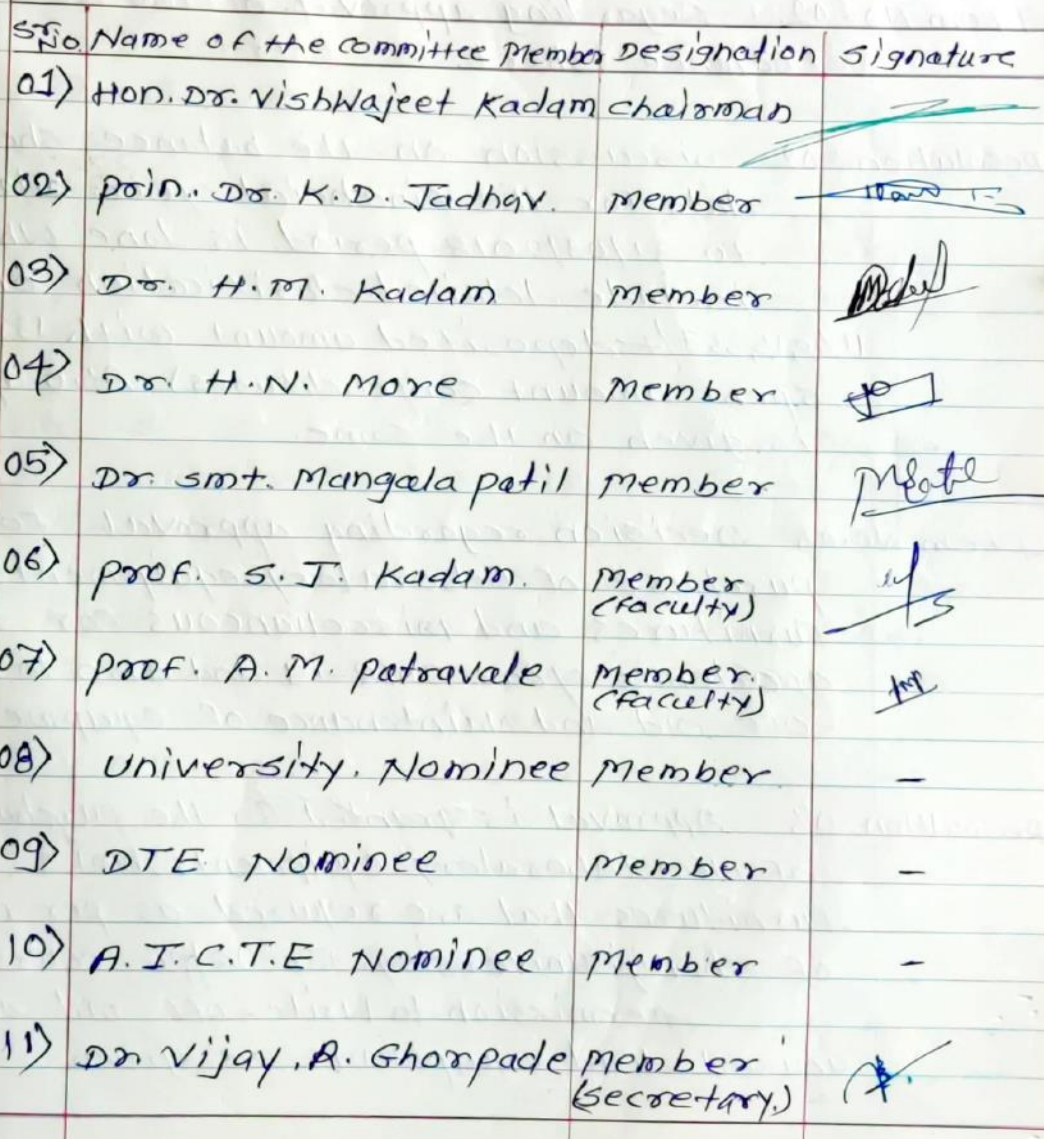 Sr. No Name of the committee Member Designation Signature
01) Hon. Dr. Vishwajeet Kadam Chairman
02) prin. Dr. K. D. Jadhav. Member
03) Dr. H. M. Kadam Member
04) Dr. H. N. More Member
05) Dr. smt. Mangala patil Member
06) prof. S. J. Kadam. Member
(faculty)
07) prof. A. M. patravale Member.
(faculty)
08) University. Nominee Member -
09) DTE Nominee Member -
10) A.I.C.T.E Nominee Member -
11) Dr. Vijay. R. Ghorpade Member
(secretary.)